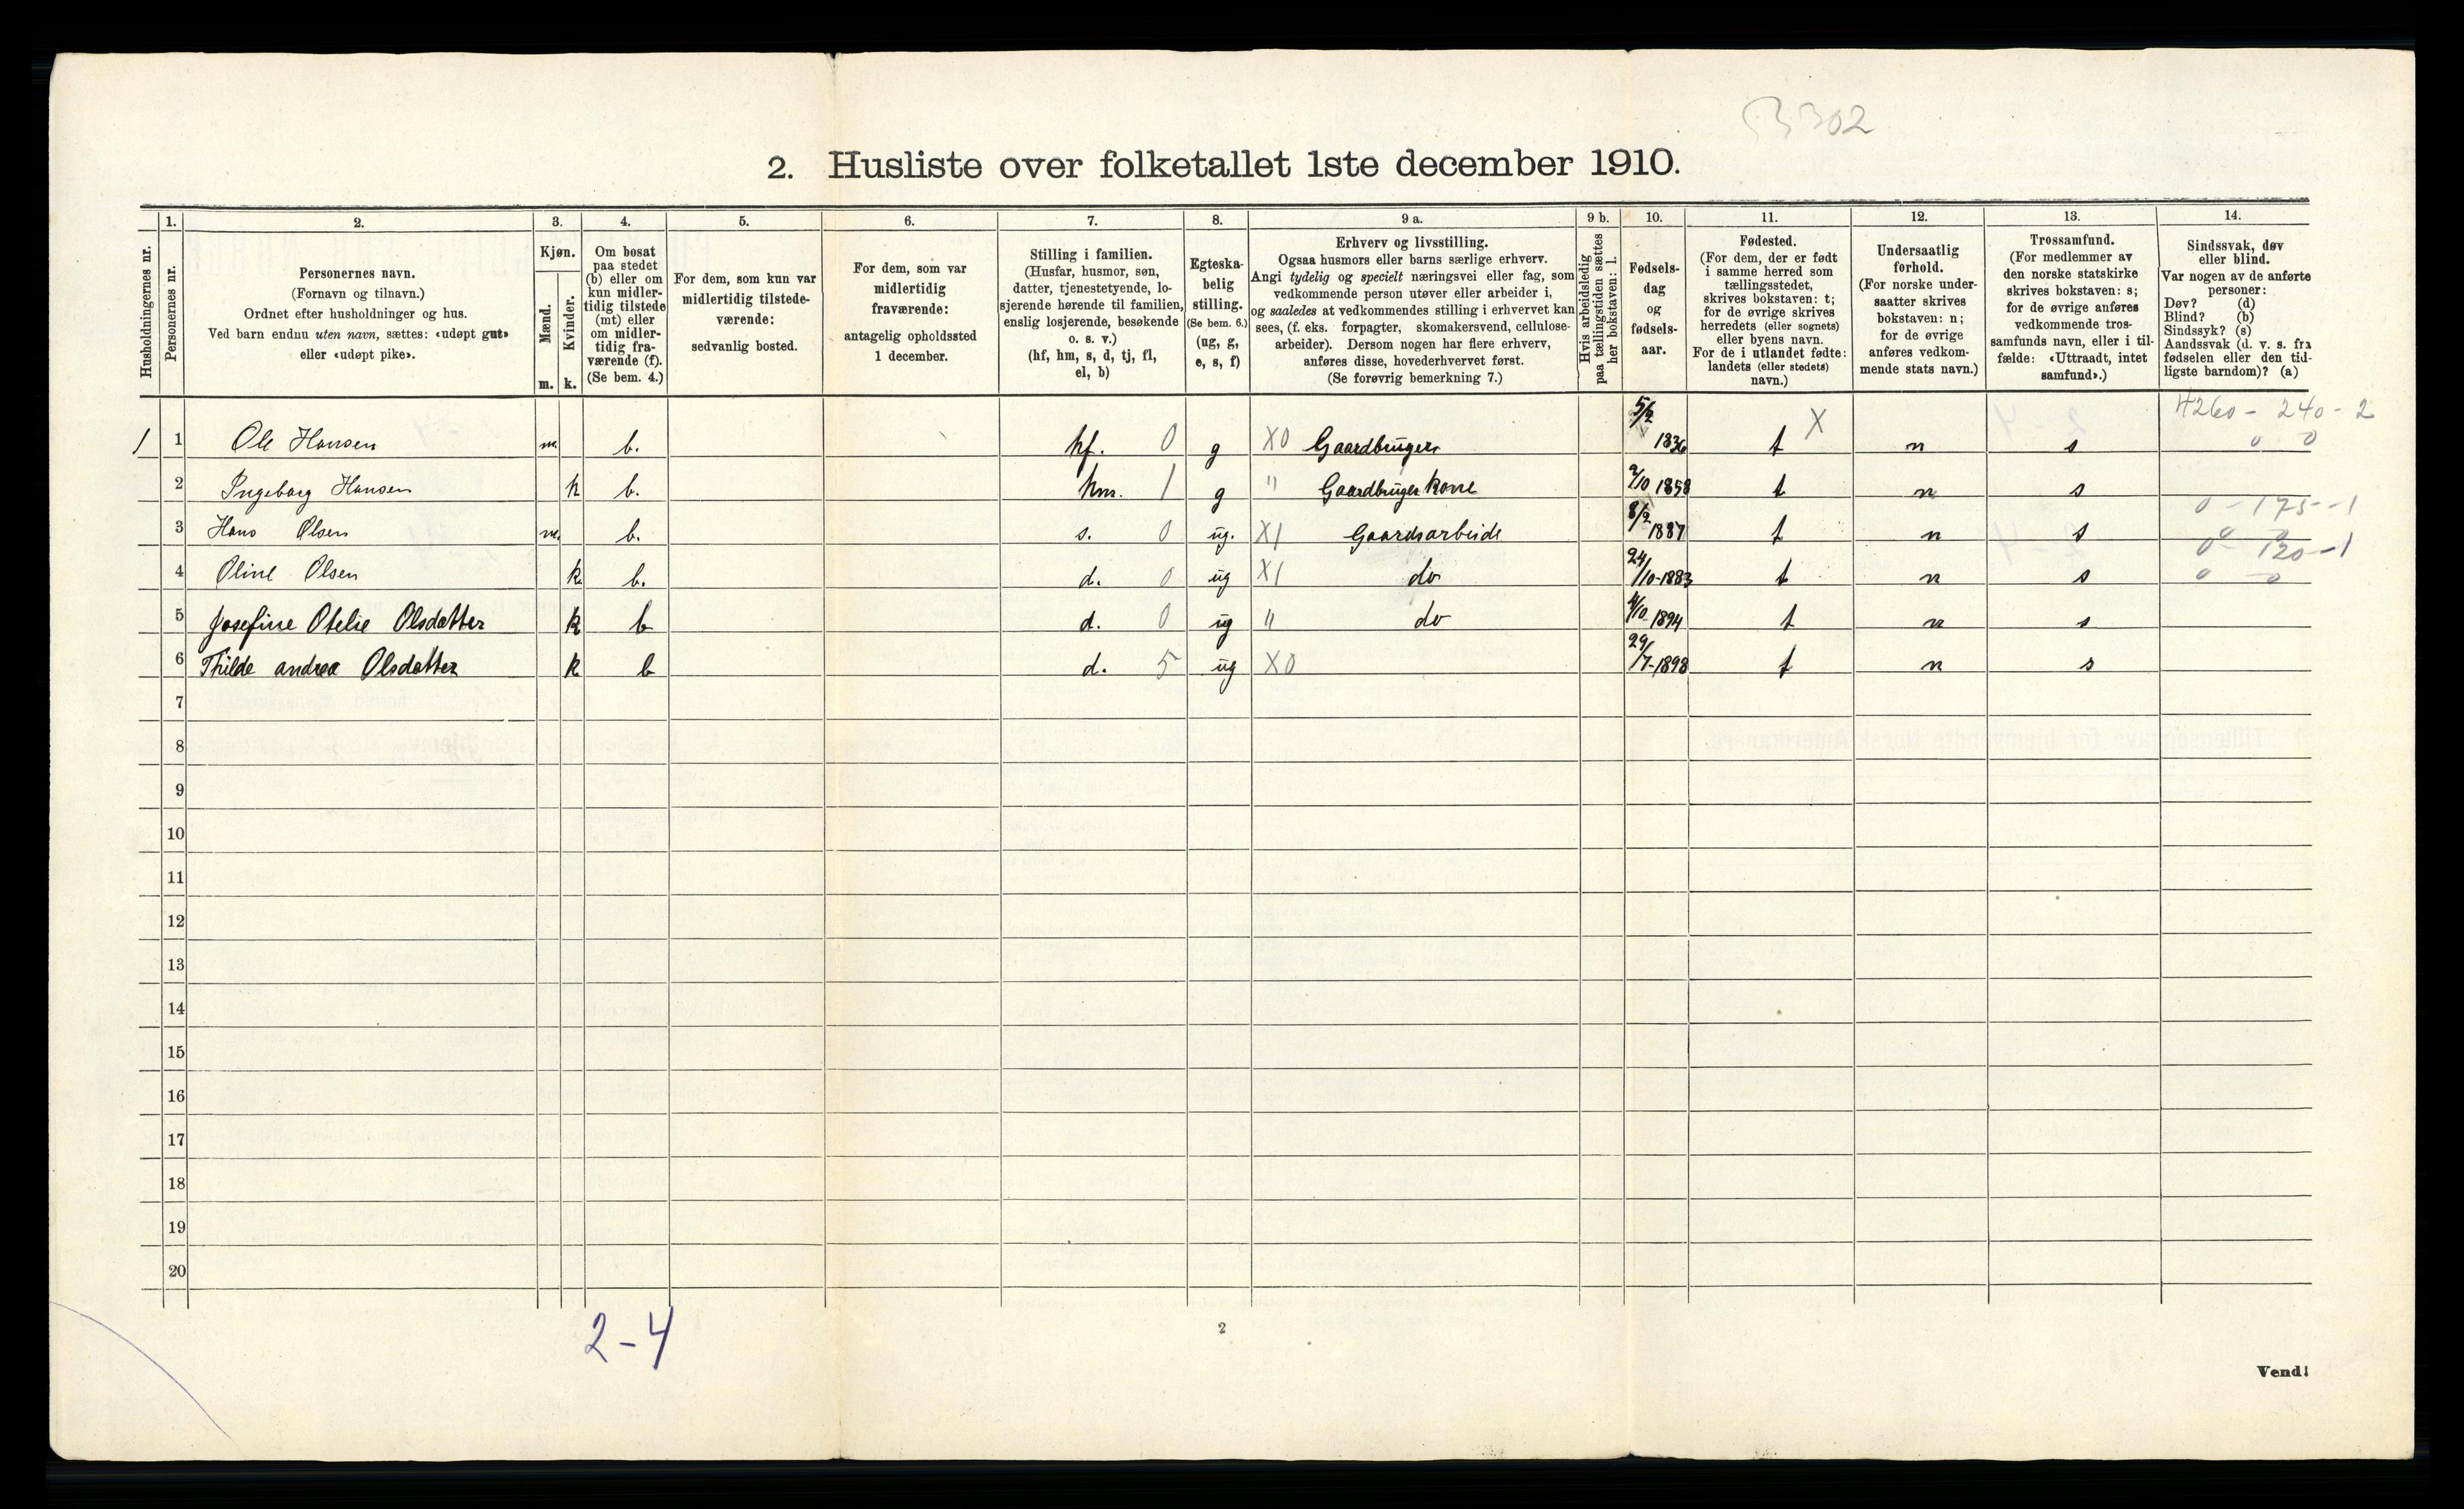 3302
2. Husliste over folketallet 1ste december 1910.
Husholdningernes nr.
1.
Personernes nr.
2.
Personernes navn.
(Fornavn og tilnavn.)
Ordnet efter husholdninger og hus.
Ved barn endnu uten navn, sættes: «udøpt gut»
eller «udøpt pike».
3.
Kjøn.
Mænd.
Kvinder.
m. k.
4.
Om bosat
paa stedet
(b) eller om
kun midler-
tidig tilstede
(mt) eller
om midler-
tidig fra-
værende (f).
(Se bem. 4.)
5.
For dem, som kun var
midlertidig tilstede-
værende:
sedvanlig bosted.
6.
For dem, som var
midlertidig
fraværende:
antagelig opholdssted
1 december.
7.
Stilling i familien.
(Husfar, husmor, søn,
datter, tjenestetyende, lo-
sjerende hørende til familien,
enslig losjerende, besøkende
o. s. v.)
(hf, hm, s, d, tj, fl,
el, b)
8.
Egteska-
belig
stilling.
(Se bem. 6.)
(ug, g,
e, s, f)
9 a.
Erhverv og livsstilling.
Ogsaa husmors eller barns særlige erhverv.
Angi tydelig og specielt næringsvei eller fag, som
vedkommende person utøver eller arbeider i,
og saaledes at vedkommendes stilling i erhvervet kan
sees, (f. eks. forpagter, skomakersvend, cellulose-
arbeider). Dersom nogen har flere erhverv,
anføres disse, hovederhvervet først.
(Se forøvrig bemerkning 7.)
9 b.
Hvis arbeidsledig
paa tællingstiden sættes
her bokstaven: l.
10.
Fødsels-
dag
og
fødsels-
aar.
11.
Fødested.
(For dem, der er født
i samme herred som
tællingsstedet,
skrives bokstaven: t;
for de øvrige skrives
herredets (eller sognets)
eller byens navn.
For de i utlandet fødte:
landets (eller stedets)
navn.)
12.
Undersaatlig
forhold.
(For norske under-
saatter skrives
bokstaven: n;
for de øvrige
anføres vedkom-
mende stats navn.)
13.
Trossamfund.
(For medlemmer av
den norske statskirke
skrives bokstaven: s;
for de øvrige anføres
vedkommende tros-
samfunds navn, eller i til-
fælde: «Uttraadt, intet
samfund».)
14.
Sindssvak, døv
eller blind.
Var nogen av de anførte
personer:
Døv? (d)
Blind? (b)
Sindssyk? (s)
Aandssvak (d. v. s. fra
fødselen eller den tid-
ligste barndom)? (a)
4260 - 240 - 2
1 1 Ole Hansen m. b. hf. 0 g X0 Gaardbruger 5/2 1836 t X n s 0 0
2 Ingeborg Hansen k b. hm. 1 g " Gaardbruger kone 2/10 1858 t n s
0 - 175 - 1
3 Hans Olsen m. b. s. 0 ug. X1 Gaardsarbeide 8/2 1887 t n s 0 0
0 - 120 - 1
4 Oline Olsen k b. d. 0 ug X1 do 24/10-1883 t n s 0 - 0
5 Josefine Otelie Olsdatter k b d. 0 ug " do 4/10 1894 t n s
6 Thilde andrea Olsdatter k b d. 5 ug X0 29/7-1898 t n s
7
8
9
10
11
12
13
14
15
16
17
18
19
20
2-4
2
Vend!